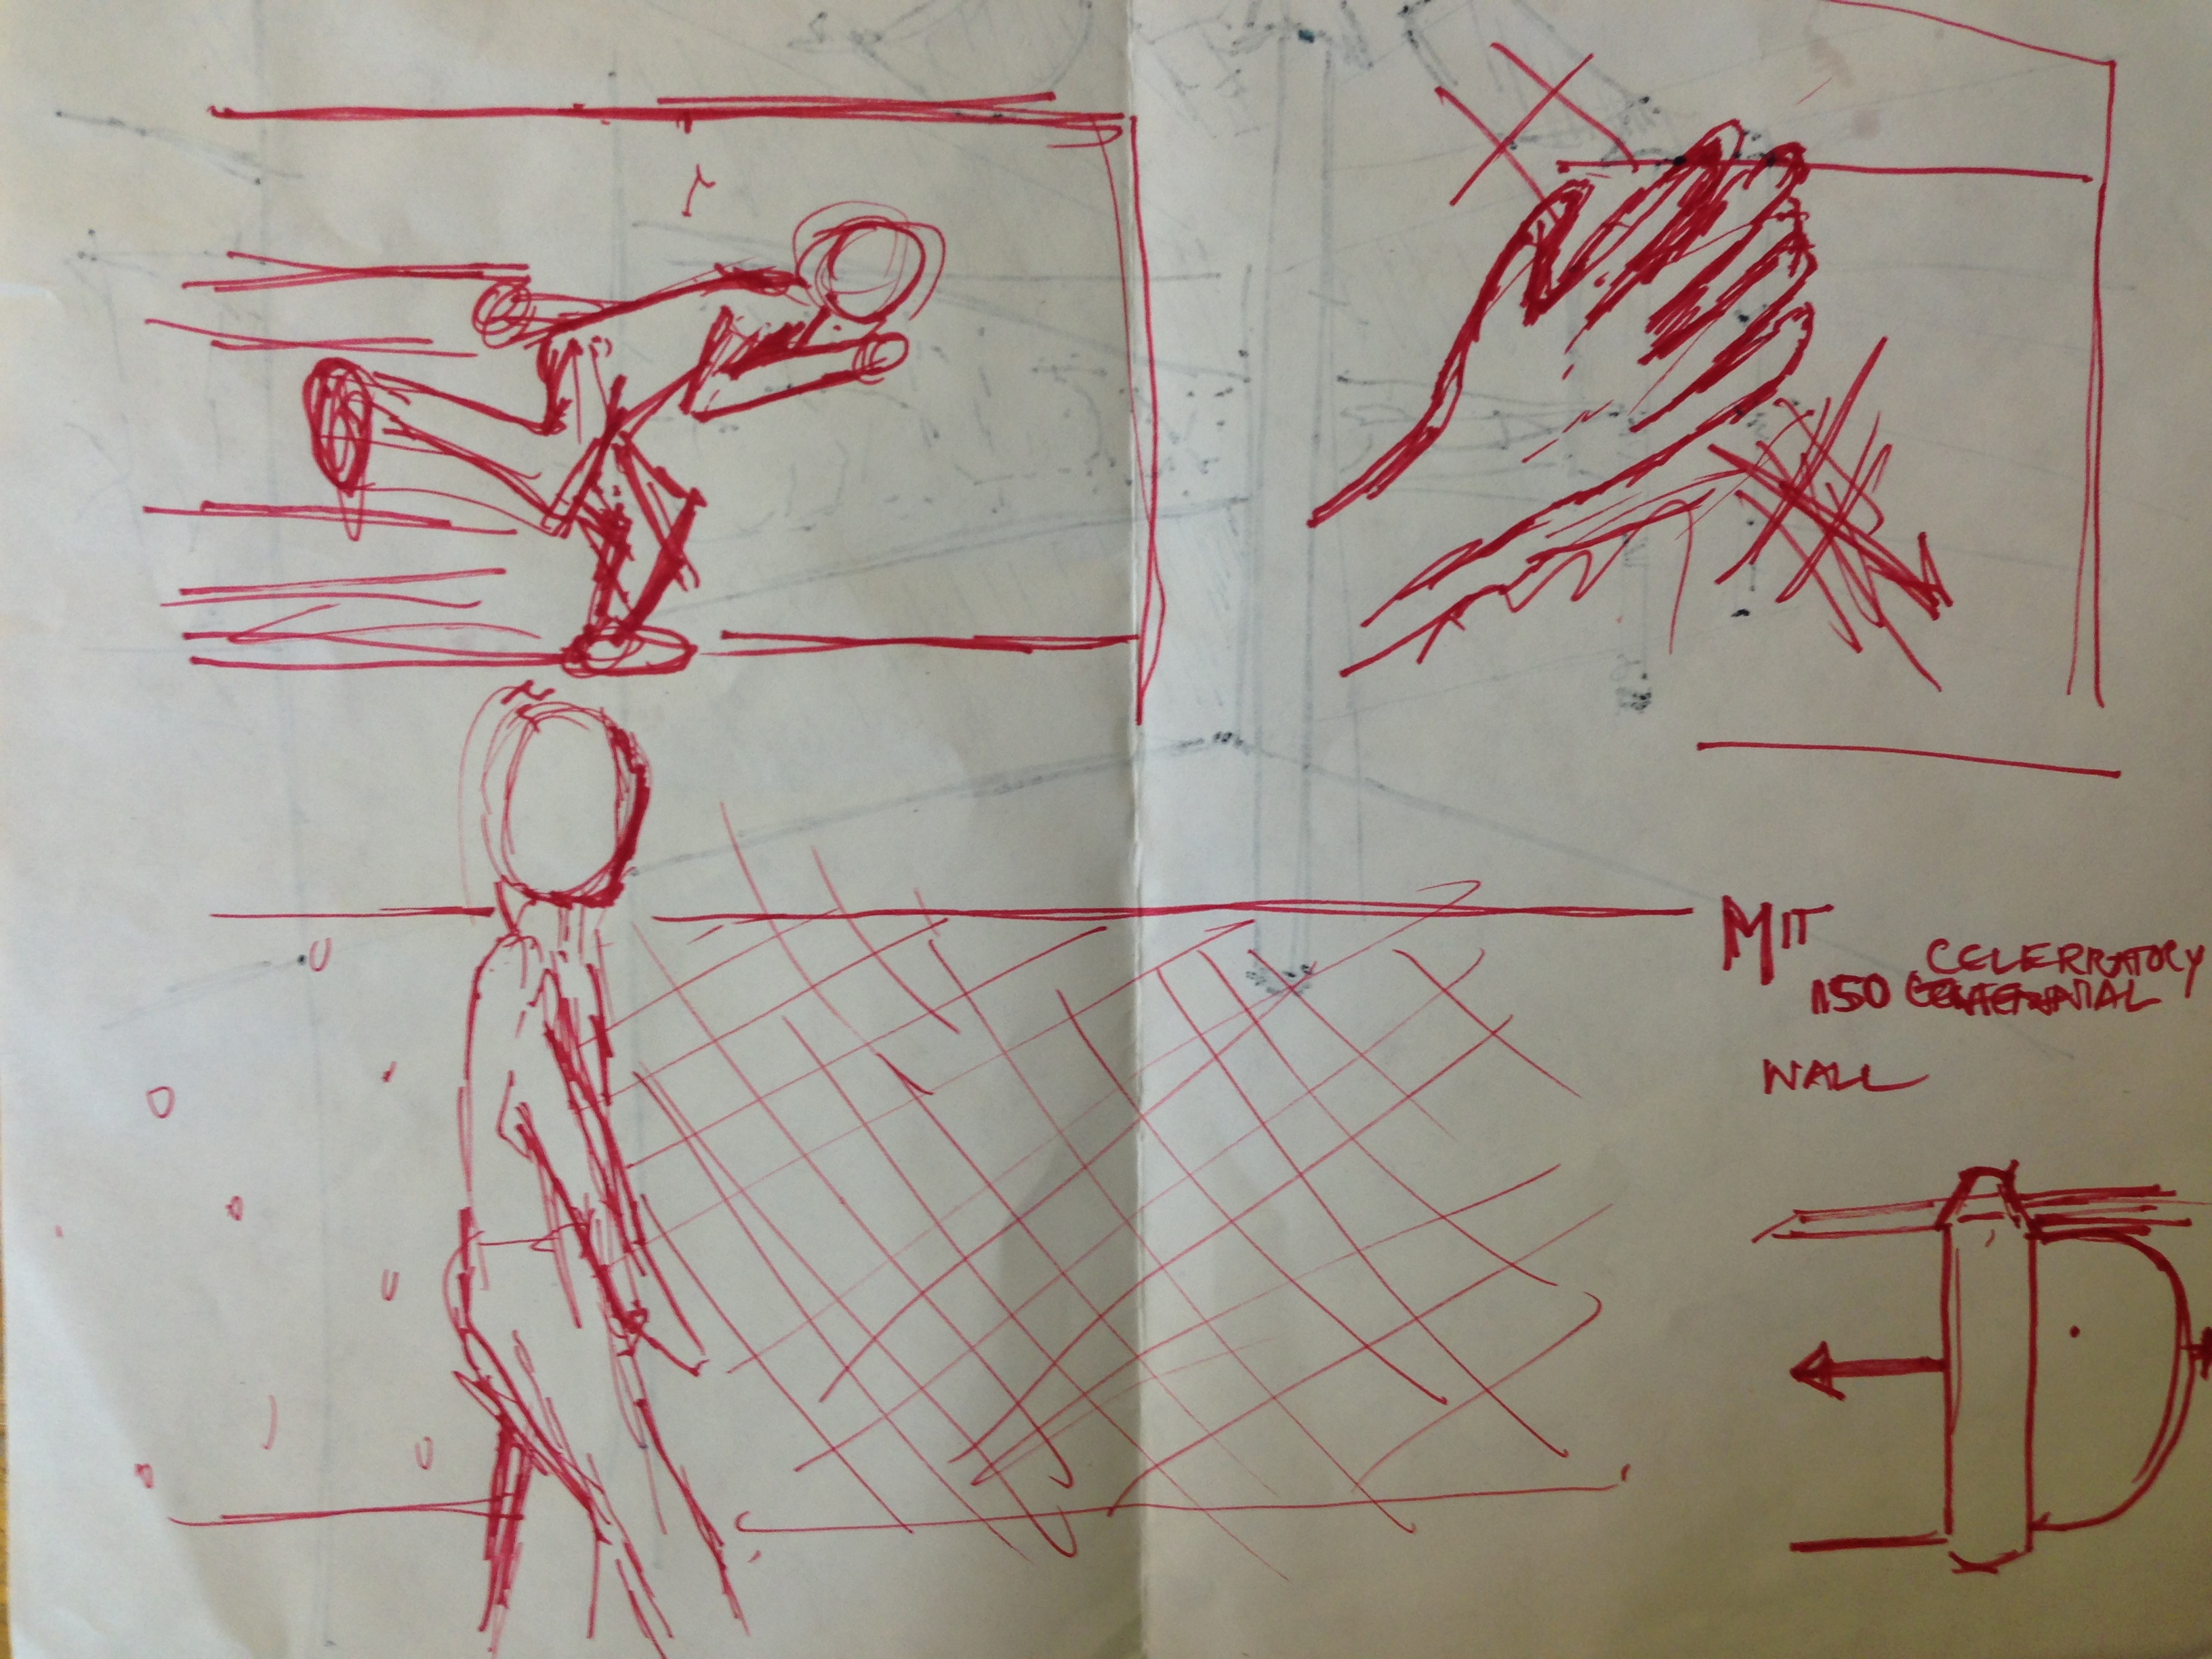 MIT
CELEBRATORY
150 CENTENNIAL
WALL